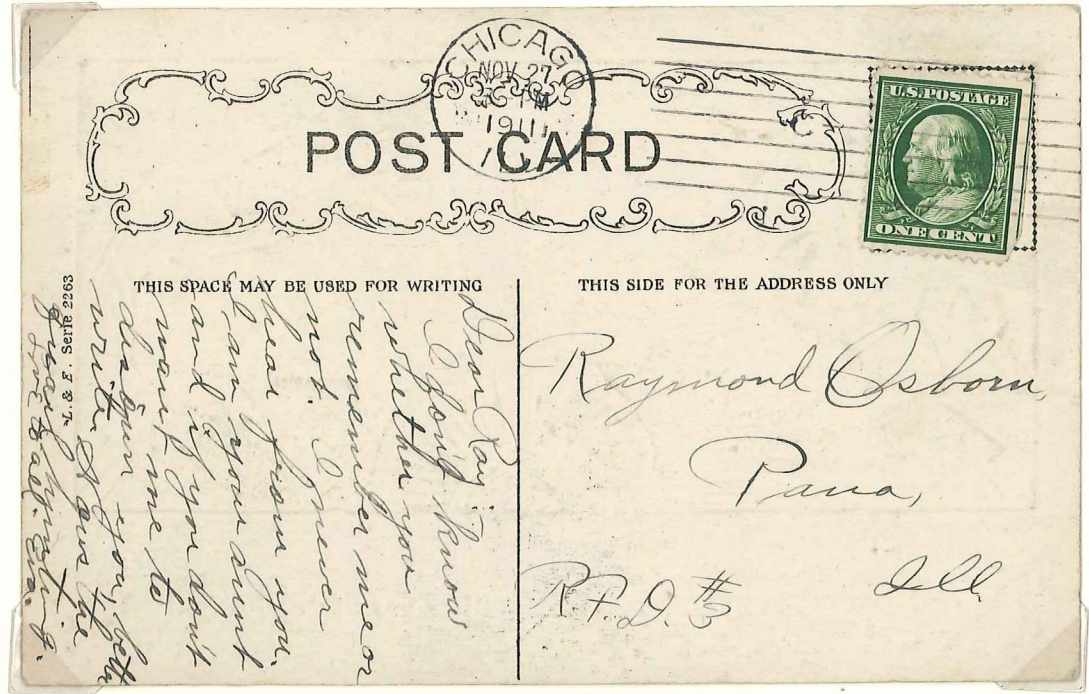 CHICAGO
NOV 27
PM
1911
POST CARD
U.S. POSTAGE
ONE CENT
THIS SPACE MAY BE USED FOR WRITING
THIS SIDE FOR THE ADDRESS ONLY
L. & E. Serie 2263
Dear Ray:
I don't know
whether you
remember me or
not. I never
hear from you.
I am your aunt
and if you don't
want me to
disown you, better
write. Hows the
hunting.
Love to all. Eva.
Raymond Osborn,
Pana,
Ill
R.F.D. #3